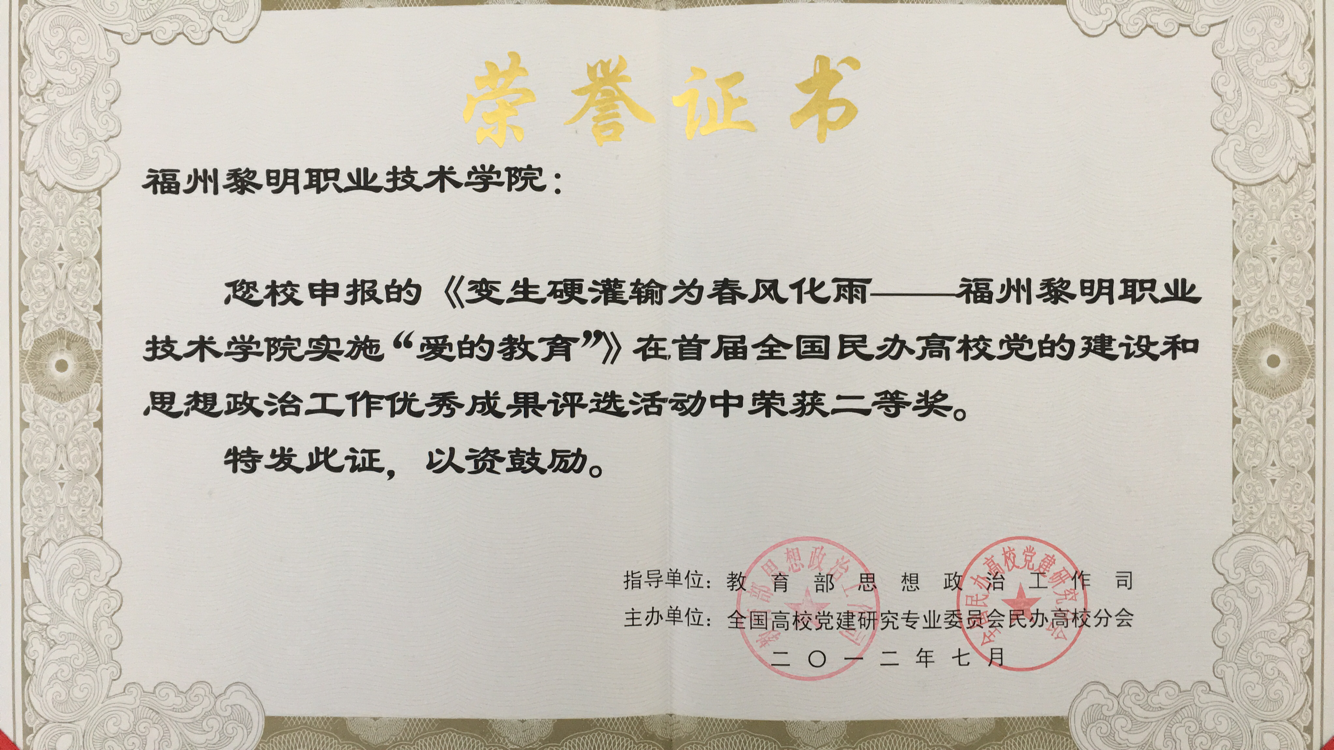 荣誉证书
福州黎明职业技术学院：
您校申报的《变生硬灌输为春风化雨——福州黎明职业
技术学院实施“爱的教育”》在首届全国民办高校党的建设和
思想政治工作优秀成果评选活动中荣获二等奖。
特发此证，以资鼓励。
指导单位：教育部思想政治工作司
主办单位：全国高校党建研究专业委员会民办高校分会
二〇一二年七月
教育部思想政治工作司